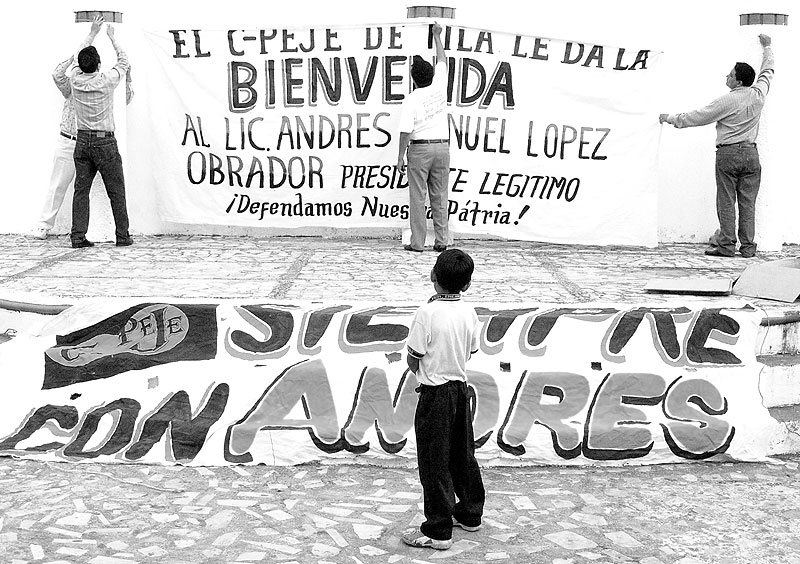 EL C-PEJE DE LE DA LA
BIENVENIDA
AL LIC. ANDRES MANUEL LOPEZ
OBRADOR PRESIDENTE LEGITIMO
¡Defendamos Nuestra Pátria!
C PEJE
SIEMPRE
CON ANDRES